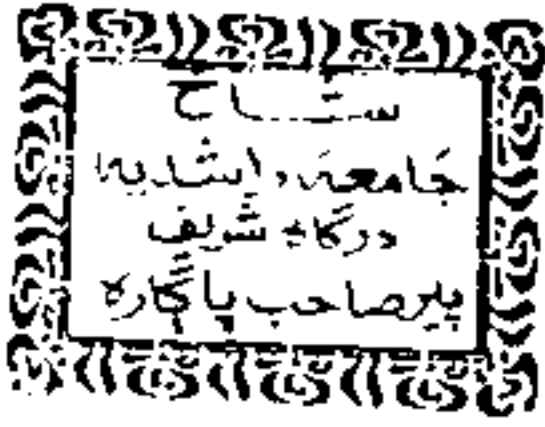 ستاح
جامعہ راشدیہ
درگاہ شریف
پیر صاحب پاڳارہ